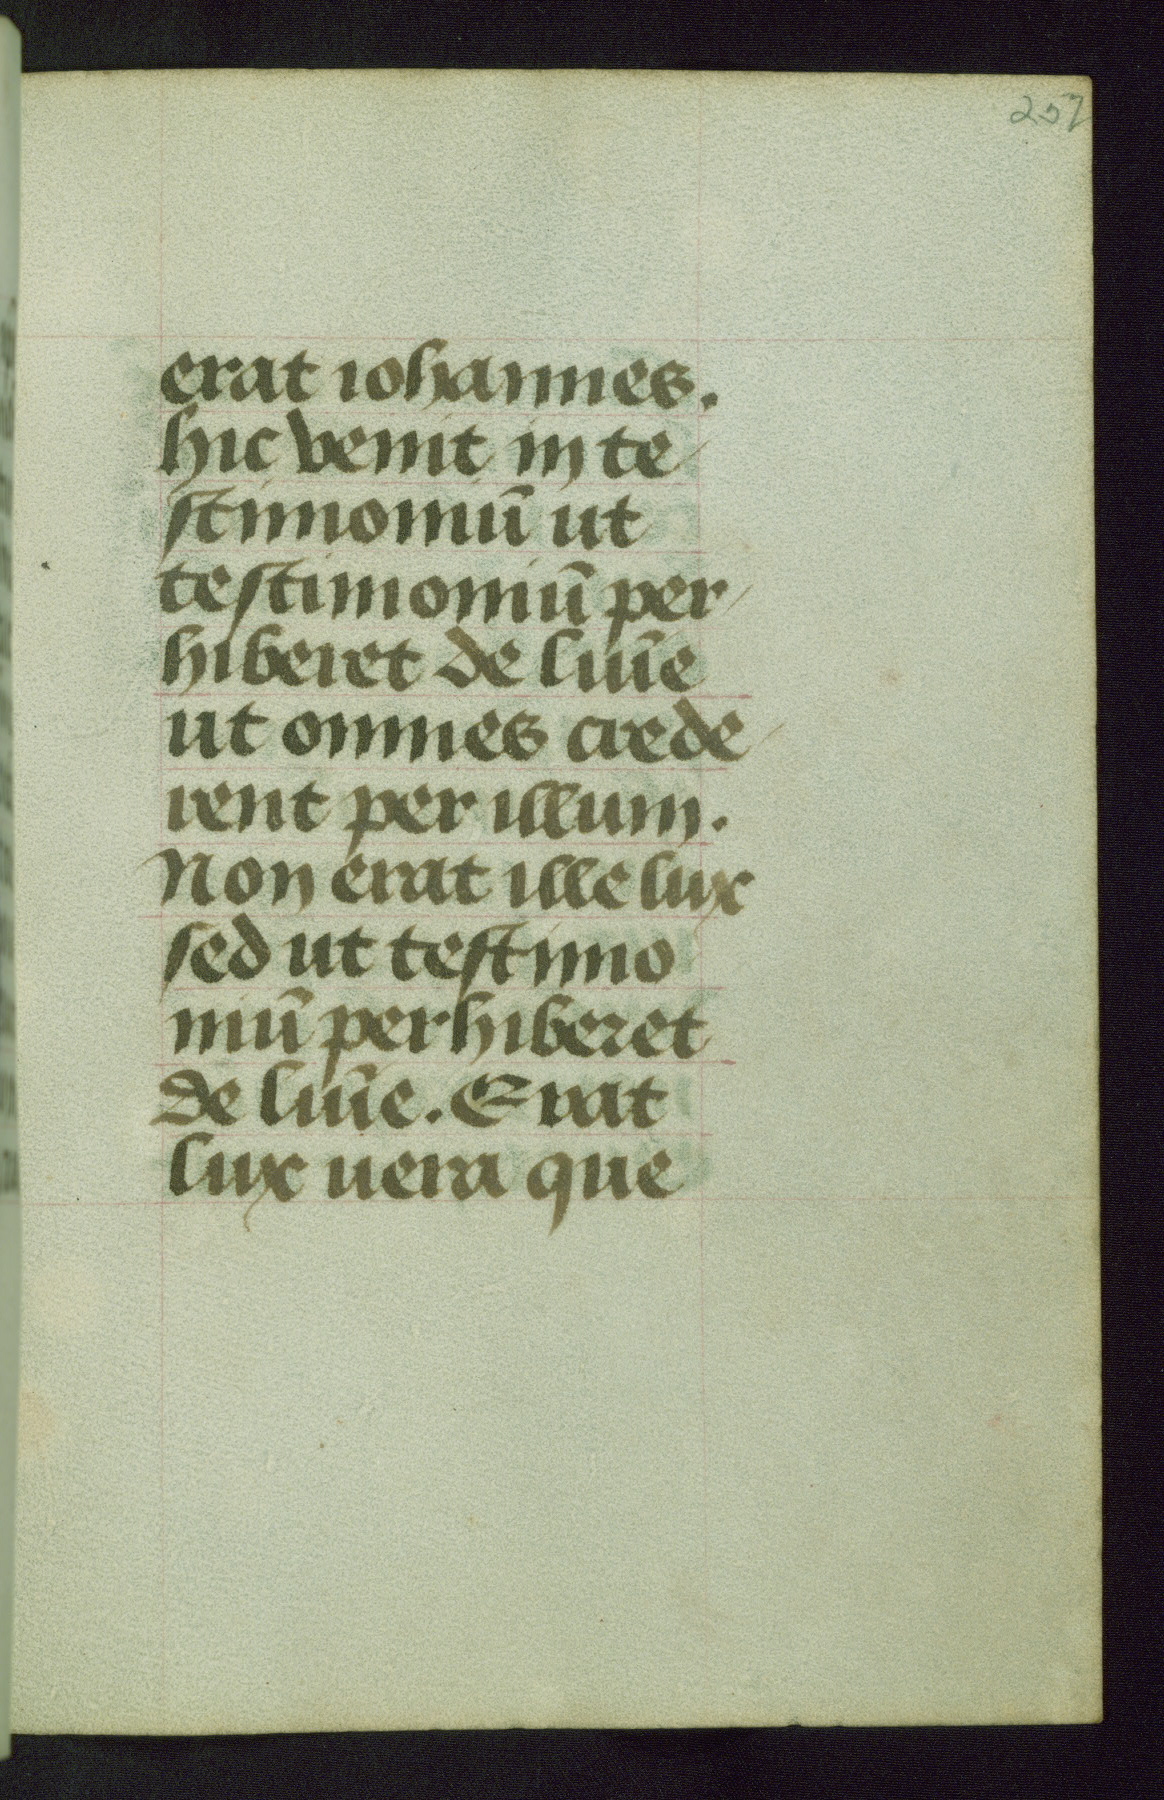 257
erat iohannes.
hic venit in te
stimoniū ut
testimoniū per
hiberet de lūīe
ut omnes crede
rent per illum.
Non erat ille lux
sed ut testimo
niū perhiberet
de lūīe. Erat
lux uera que